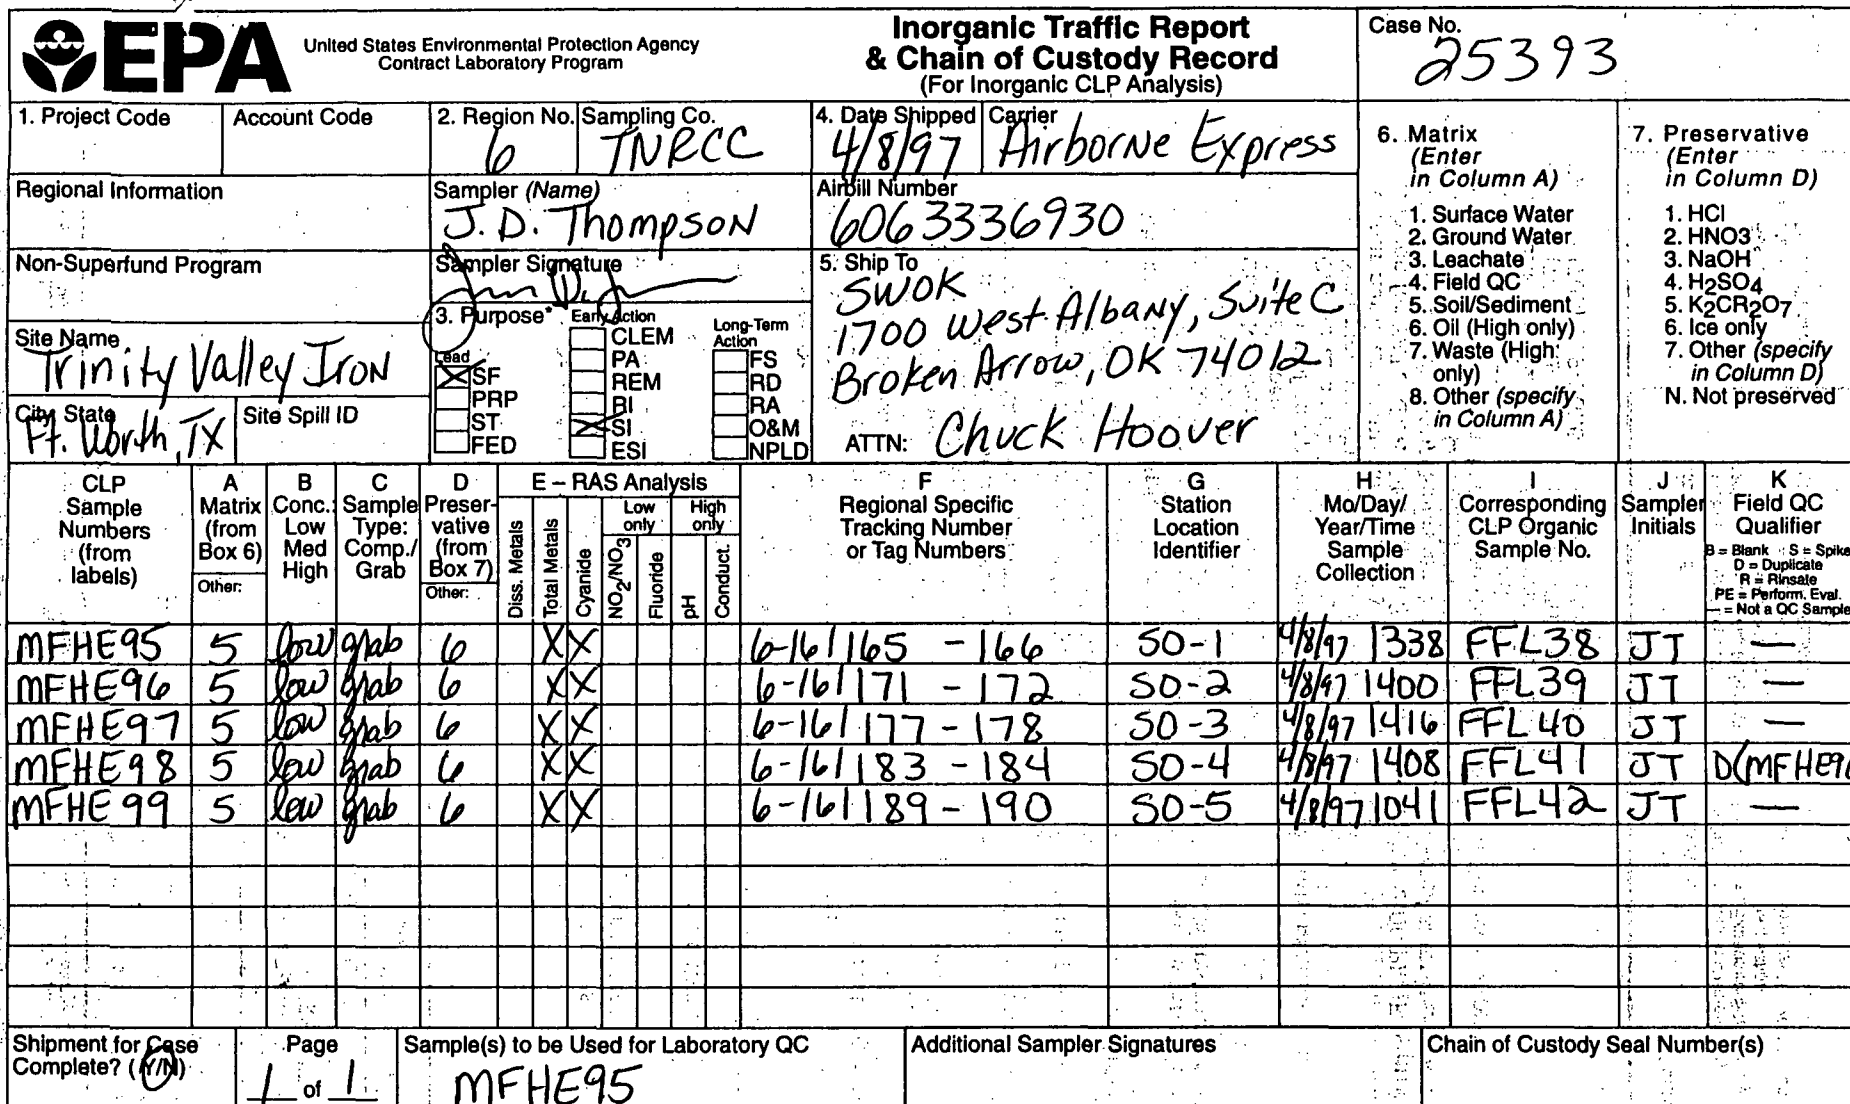 EPA United States Environmental Protection Agency
Contract Laboratory Program
Inorganic Traffic Report
& Chain of Custody Record
(For Inorganic CLP Analysis)
Case No.
25393
1. Project Code
Account Code
2. Region No.
6
Sampling Co.
TNRCC
4. Date Shipped
4/8/97
Carrier
Airborne Express
Regional Information
Sampler (Name)
J.D. Thompson
Airbill Number
6063336930
Non-Superfund Program
Sampler Signature
5. Ship To
SWOK
1700 West Albany, Suite C
Broken Arrow, OK 74012
ATTN: Chuck Hoover
Site Name
Trinity Valley Iron
City, State
Ft. Worth, TX
Site Spill ID
3. Purpose*
Lead
SF
PRP
ST
FED
Early Action
CLEM
PA
REM
RI
SI
ESI
Long-Term
Action
FS
RD
RA
O&M
NPLD
6. Matrix
(Enter
in Column A)
1. Surface Water
2. Ground Water
3. Leachate
4. Field QC
5. Soil/Sediment
6. Oil (High only)
7. Waste (High
only)
8. Other (specify
in Column A)
7. Preservative
(Enter
in Column D)
1. HCl
2. HNO3
3. NaOH
4. H2SO4
5. K2CR2O7
6. Ice only
7. Other (specify
in Column D)
N. Not preserved
CLP
Sample
Numbers
(from
labels)
A
Matrix
(from
Box 6)
Other:
B
Conc.:
Low
Med
High
C
Sample
Type:
Comp./
Grab
D
Preser-
vative
(from
Box 7)
Other:
E – RAS Analysis
Low
only
High
only
Diss. Metals
Total Metals
Cyanide
NO2/NO3
Fluoride
pH
Conduct.
F
Regional Specific
Tracking Number
or Tag Numbers
G
Station
Location
Identifier
H
Mo/Day/
Year/Time
Sample
Collection
I
Corresponding
CLP Organic
Sample No.
J
Sampler
Initials
K
Field QC
Qualifier
B = Blank S = Spike
D = Duplicate
R = Rinsate
PE = Perform. Eval.
— = Not a QC Sample
MFHE95 5 low grab 6 X X 6-161165 - 166 SO-1 4/8/97 1338 FFL38 JT —
MFHE96 5 low grab 6 X X 6-161171 - 172 SO-2 4/8/97 1400 FFL39 JT —
MFHE97 5 low grab 6 X X 6-161177 - 178 SO-3 4/8/97 1416 FFL40 JT —
MFHE98 5 low grab 6 X X 6-161183 - 184 SO-4 4/8/97 1408 FFL41 JT D(MFHE96
MFHE99 5 low grab 6 X X 6-161189 - 190 SO-5 4/8/97 1041 FFL42 JT —
Shipment for Case
Complete? (Y/N)
Page
1 of 1
Sample(s) to be Used for Laboratory QC
MFHE95
Additional Sampler Signatures
Chain of Custody Seal Number(s)